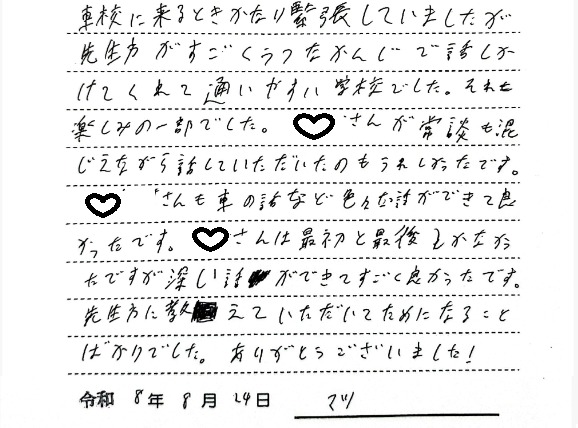 車校に来るときかなり緊張していましたが
先生方がすごくラフなかんじで話しか
けてくれて通いやすい学校でした。それも
楽しみの一部でした。♡さんが常談も混
じえながら話していただいたのもうれしかったです。
♡さんも車の話など色々な話ができて良
かったです。♡さんは最初と最後しかなかっ
たですが深い話ができてすごく良かったです。
先生方に教えていただいてためになること
ばかりでした。ありがとうございました!
令和8年8月24日 マツ